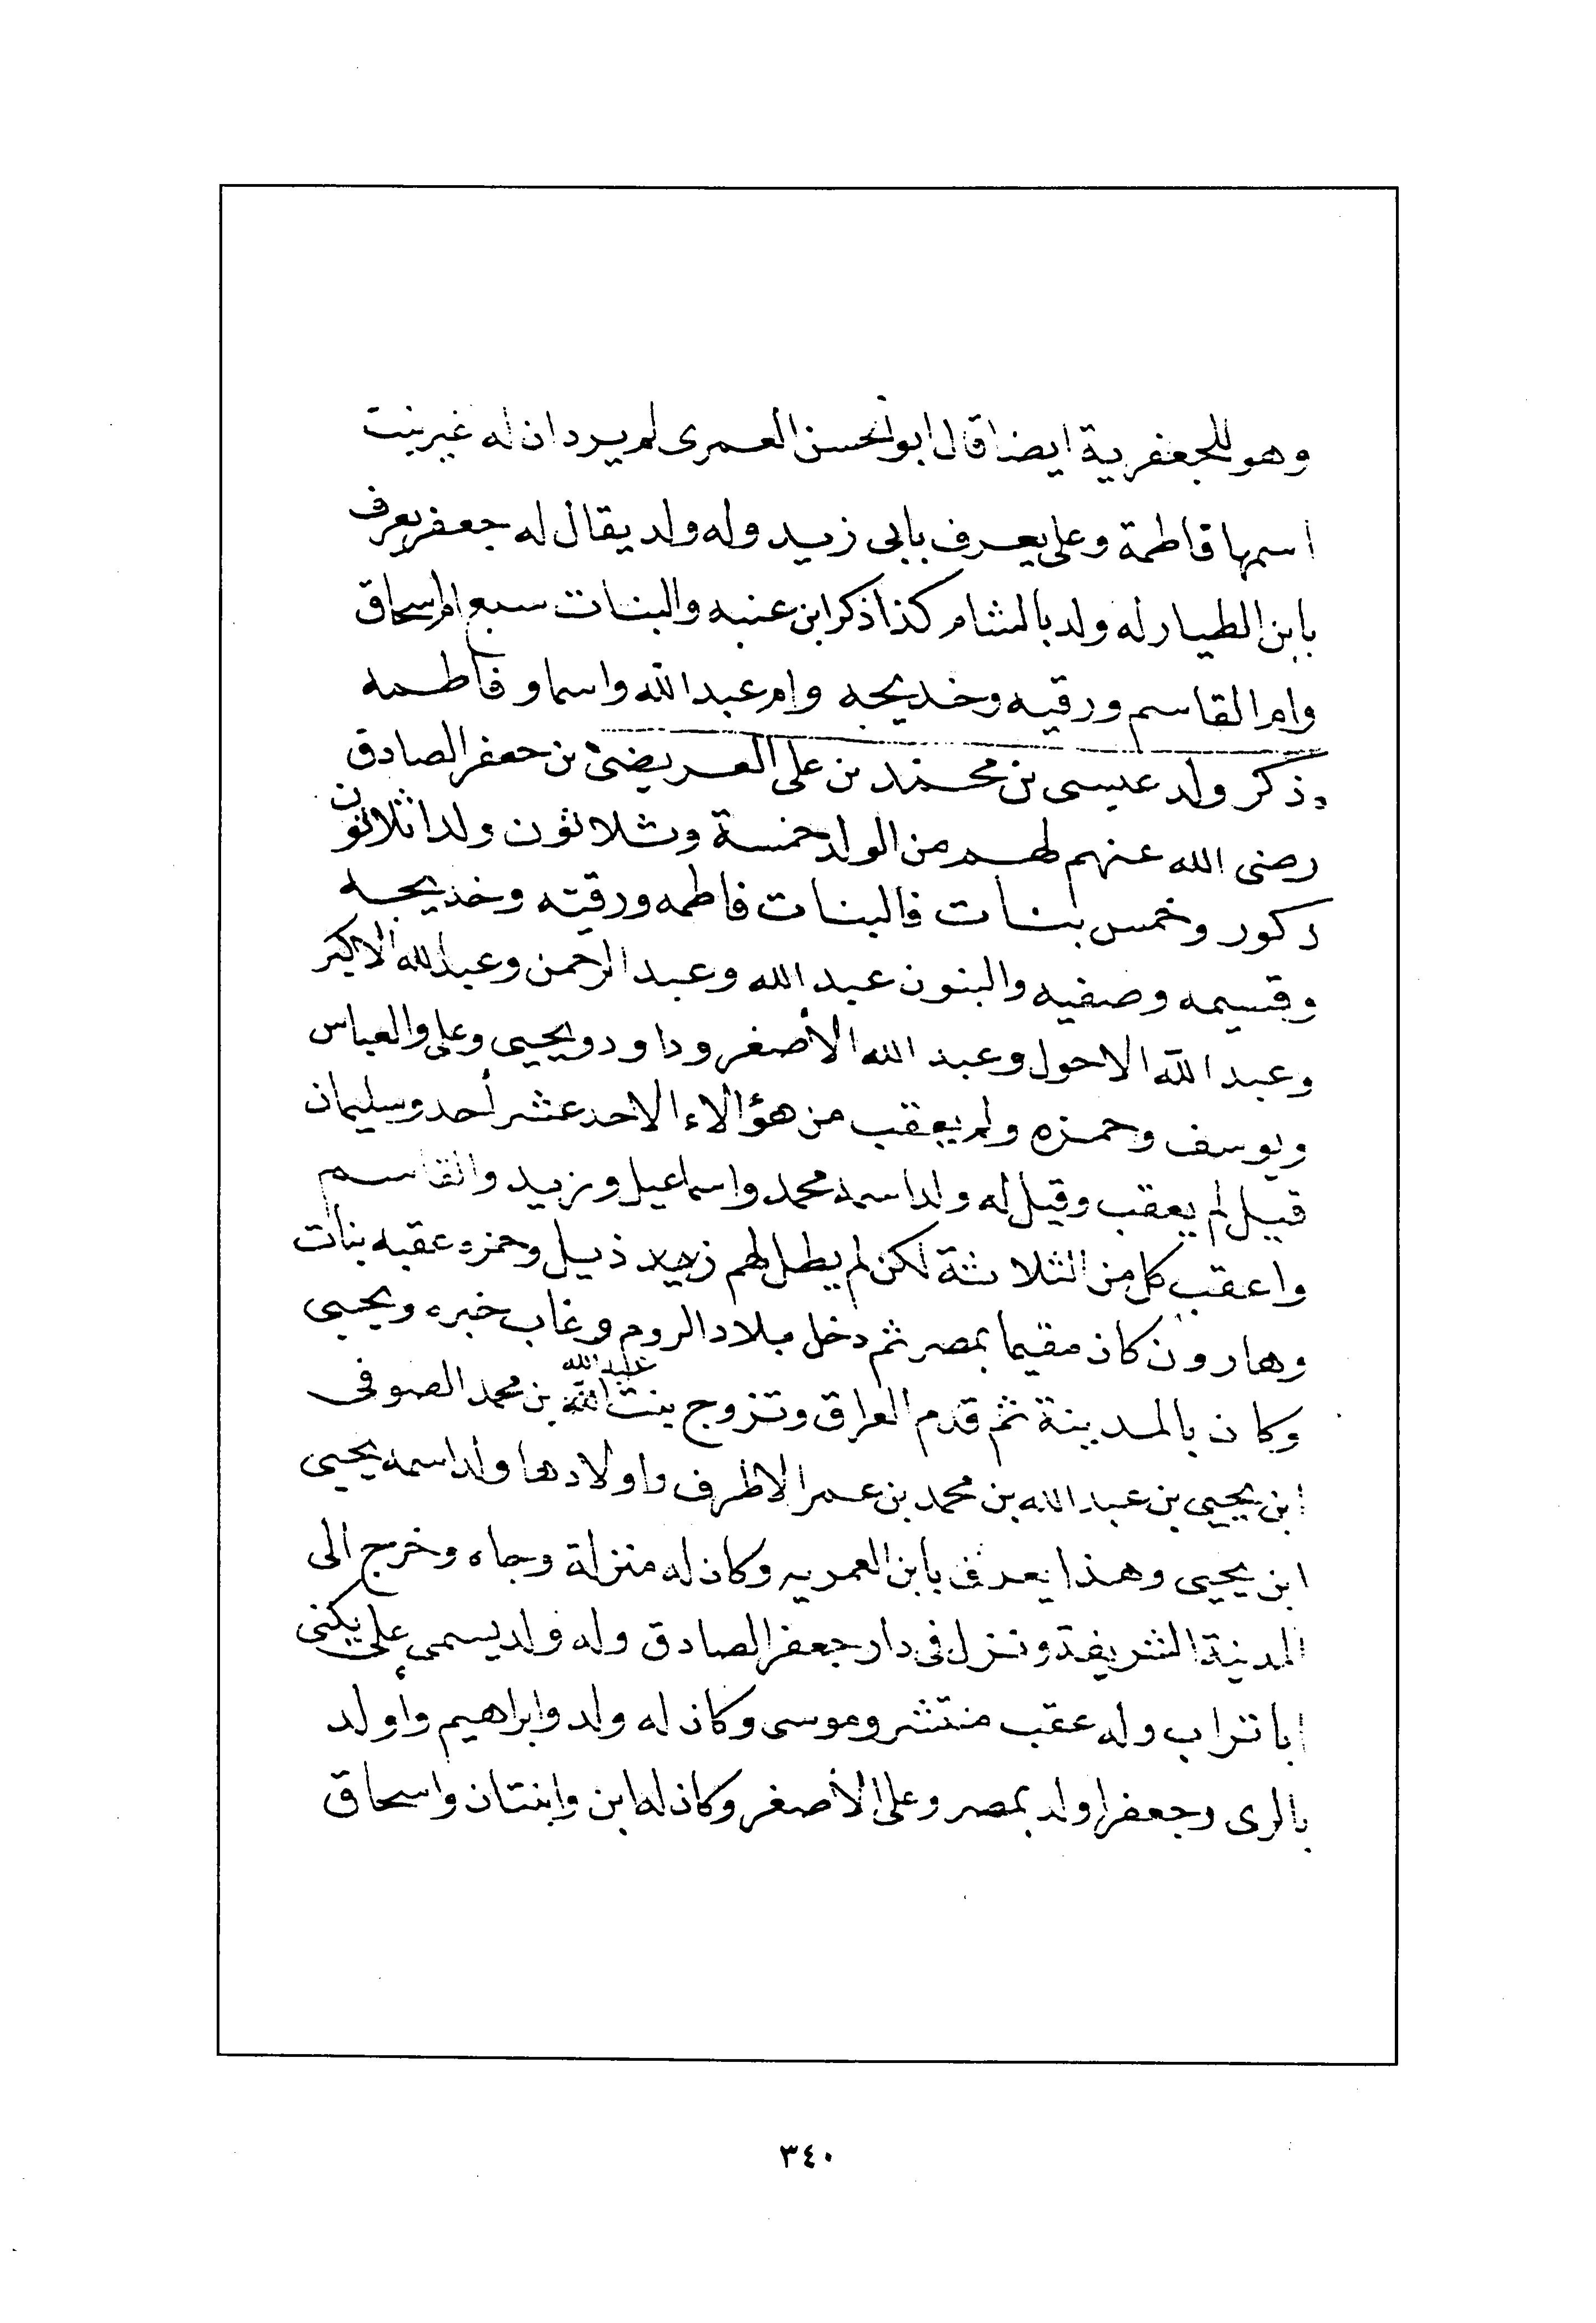 وهو للجعفرية ايضا قال ابو الحسن العمرى لم يرد ان له غير بنت
اسمها فاطمة وعلى يعرف بابى زيد وله ولد يقال له جعفر يعرف
بابن الطيار له ولد بالشام كذا ذكر ابن عنبه والبنات سبع ام اسحاق
وام القاسم ورقيه وخديجه وام عبد الله واسما وفاطمه
ذكر ولد عيسى بن محمد بن على العريضى بن جعفر الصادق
رضى الله عنهم لهم من الولد خمسة وثلاثون ولدا ثلاثون
ذكور وخمس بنات فالبنات فاطمه ورقيه وخديجه
وقسيمه وصفيه والبنون عبد الله وعبد الرحمن وعبد الله الاكبر
وعبد الله الاحول وعبد الله الأصغر وداود ويحيى وعلى والعباس
ويوسف وحمزه ولم يعقب من هؤالاء الاحد عشر أحد وسليمان
قيل لم يعقب وقيل له ولد اسمه محمد واسماعيل وزيد والقاسم
واعقب كل من الثلاثة لكن لم يطل لهم ذيل وحمزه عقبه بنات
وهارون كان مقيما بمصر ثم دخل بلاد الروم وغاب خبره ويحيى
وكان بالمدينة ثم قدم العراق وتزوج بنت عبد الله بن محمد الصوفى
ابن يحيى بن عبد الله بن محمد بن عمر الاطرف واولادها ولد اسمه يحيى
ابن يحيى وهذا يعرف بابن العمريه وكان له منزلة وجاه وخرج الى
المدينة الشريفة ونزل فى دار جعفر الصادق وله ولد يسمى على يكنى
ابا تراب وله عقب منتشر وموسى وكان له ولد وابراهيم وأولد
بالرى وجعفر اولد بمصر وعلى الأصغر وكان له ابن وابنتان واسحاق
٣٤٠